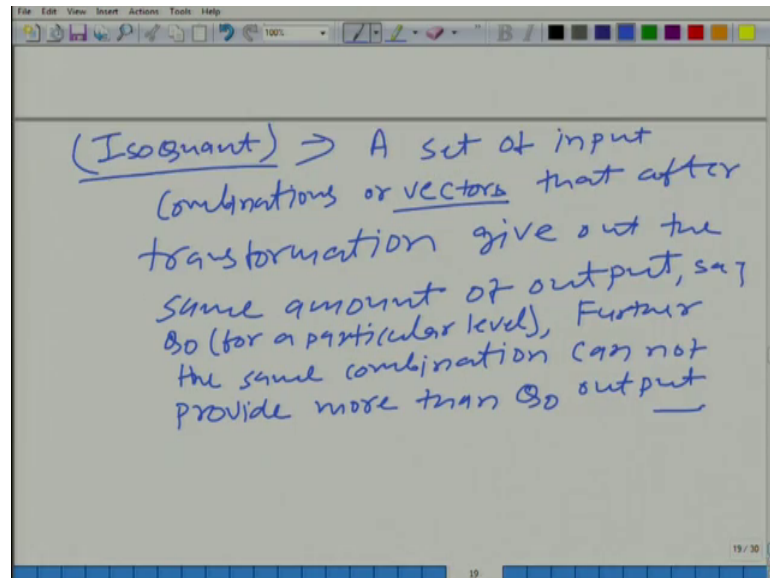 File Edit View Insert Actions Tools Help
100%
B I
(IsoQuant) ⇒ A set of input
Combinations or vectors that after
transformation give out the
same amount of output, say
Q0 (for a particular level), Further
the same combination can not
provide more than Q0 output
19 / 30
19